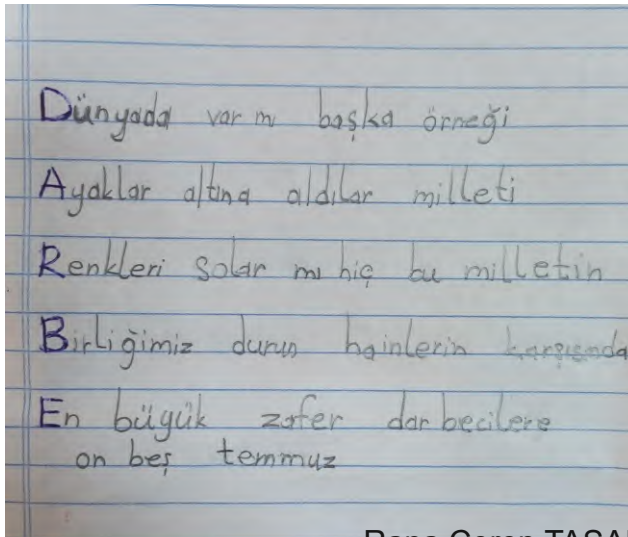 Dünyada var mı başka örneği
Ayaklar altına aldılar milleti
Renkleri solar mı hiç bu milletin
Birliğimiz durun hainlerin karşısında
En büyük zafer darbecilere
on beş temmuz